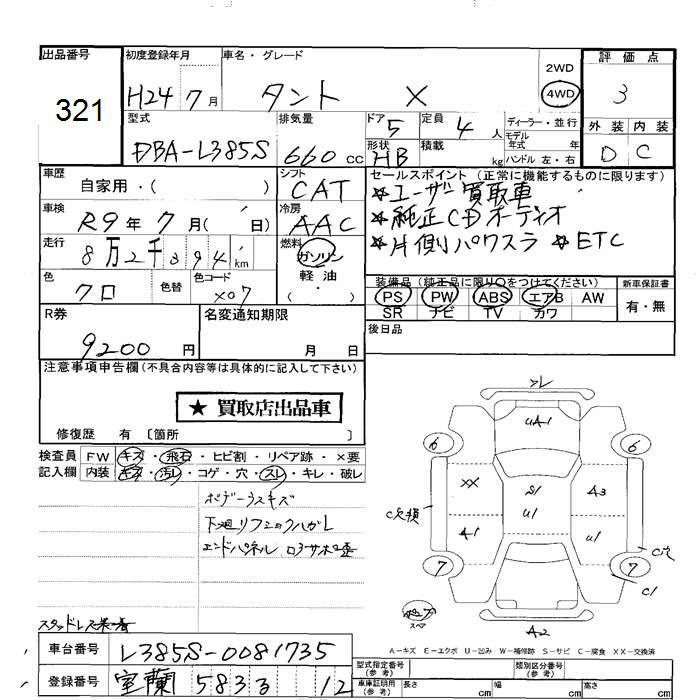 出品番号 初度登録年月 車名・グレード 評価点
321 H24 7月 タント X 2WD 4WD 3
型式 排気量 ドア 5 定員 4人 ディーラー・並行 外装 内装
DBA-L385S 660cc 形状 HB 積載 kg モデル年式 年 ハンドル 左・右 D C
車歴 自家用・( ) シフト CAT セールスポイント (正常に機能するものに限ります)
☆ユーザー買取車
車検 R9年7月( 日) 冷房 AAC ☆純正CDオーディオ
走行 8万2千394km 燃料 ガソリン ☆片側パワスラ ☆ETC
軽油・( )
色 クロ 色替 色コード X07 装備品(純正品に限り○をつけてください) 新車保証書
PS PW ABS エアB AW 有・無
SR ナビ TV カワ
R券 9200円 名変通知期限 月 日 後日品
注意事項申告欄(不具合内容等は具体的に記入して下さい)
★ 買取店出品車
修復歴 有 〔箇所 〕
検査員 FW キズ・飛石・ヒビ割・リペア跡・×要
記入欄 内装 キズ・汚れ・コゲ・穴・スレ・キレ・破レ
ボデーラスキズ
エンドパネル
スタッドレス
車台番号 L385S-0081735
登録番号 室蘭 583 る 12
6 UA1 6
XX S1 A3
C欠損 A1 U1 U1 C穴
7 7 C1
スペア A2
A-キズ E-エクボ U-凹み W-補修跡 S-サビ C-腐食 XX-交換済
型式指定番号(参考) 類別区分番号(参考)
車庫証明用(参考) 長さ cm 幅 cm 高さ cm